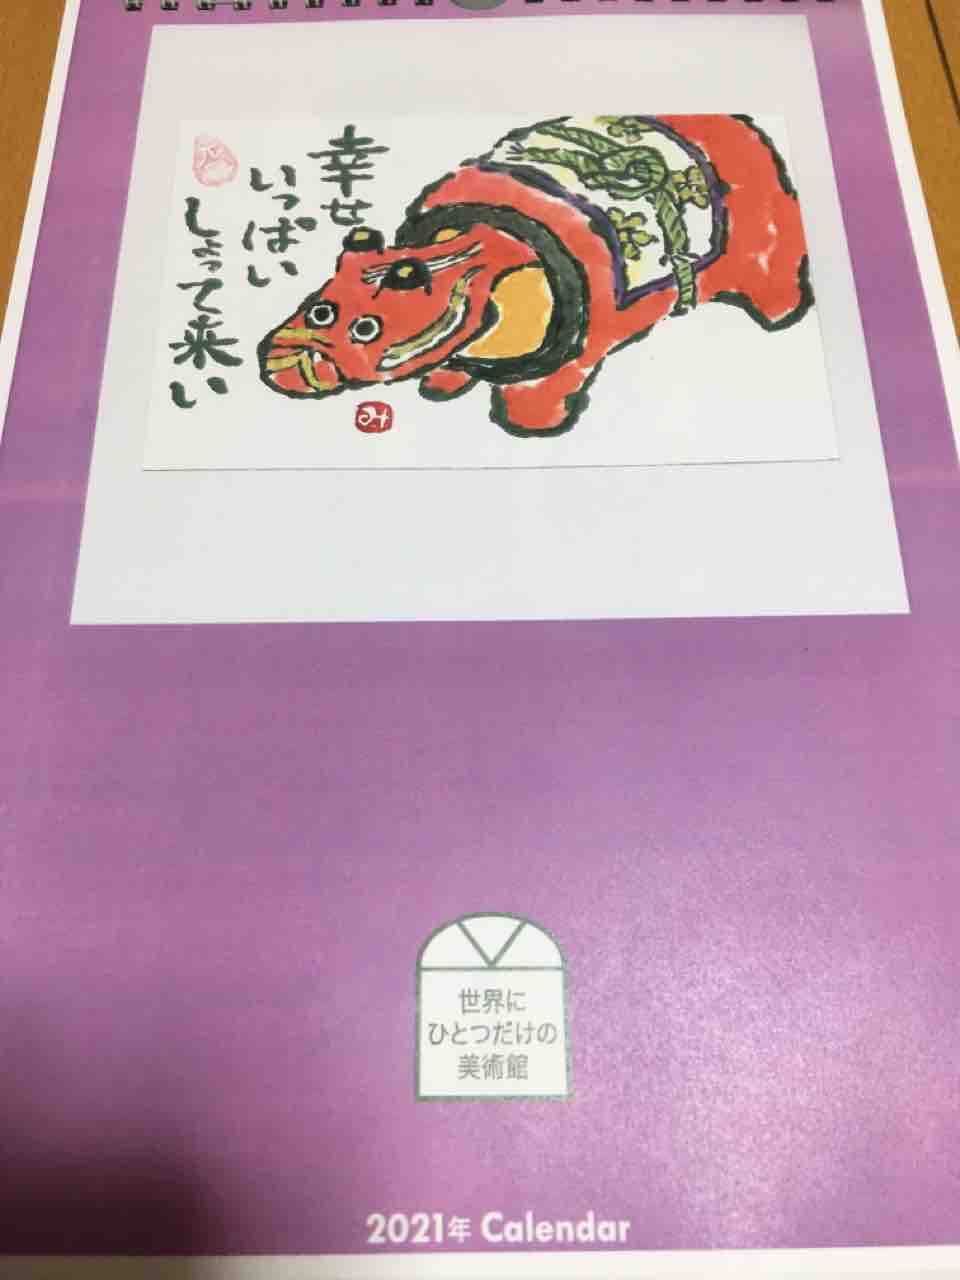 幸せ
いっぱい
しょって来い
み
世界に
ひとつだけの
美術館
2021年 Calendar